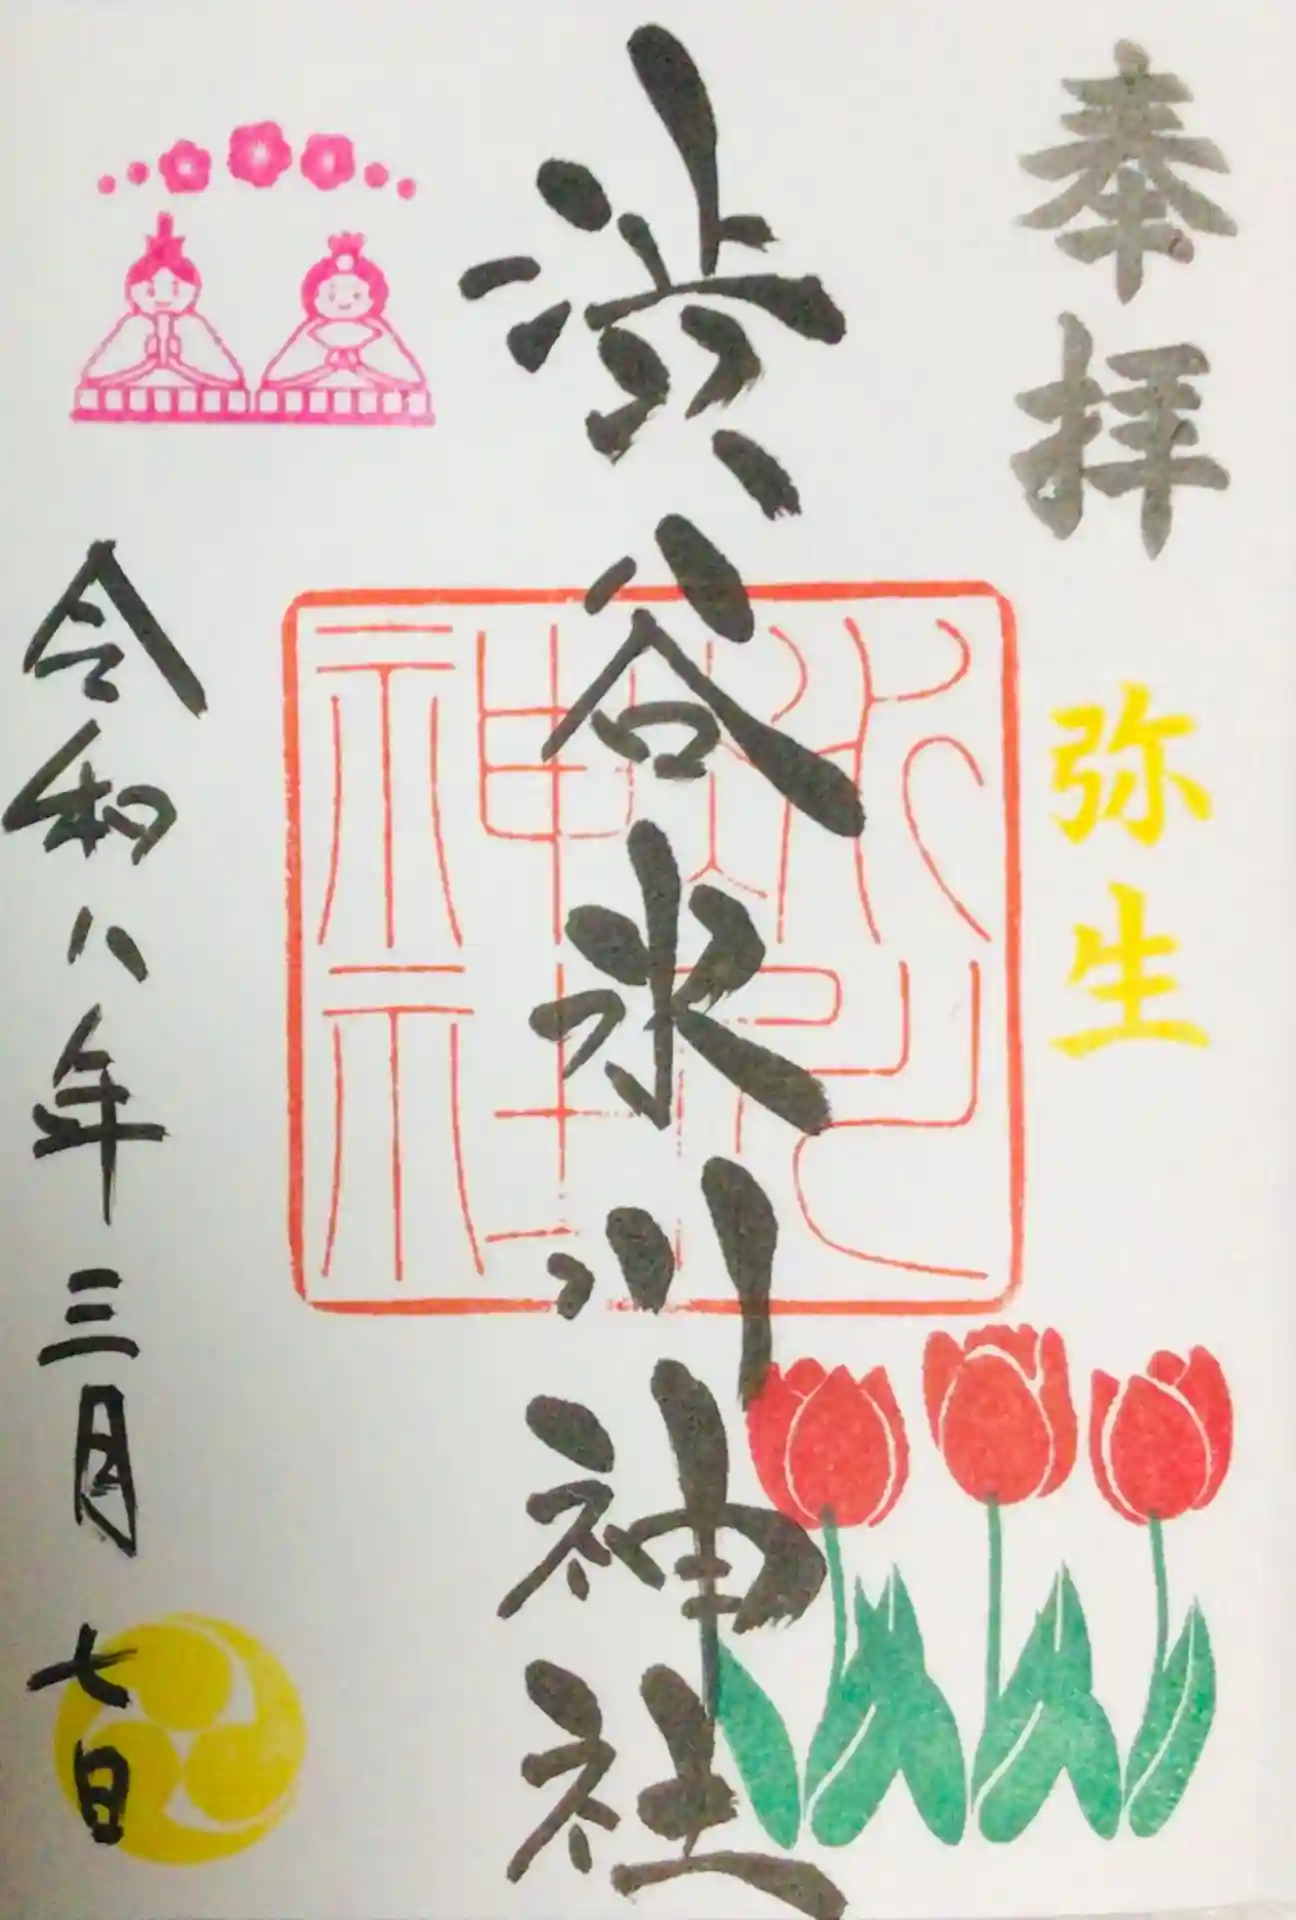 奉拝
弥生
渋谷氷川神社
氷川神社
令和八年三月七日